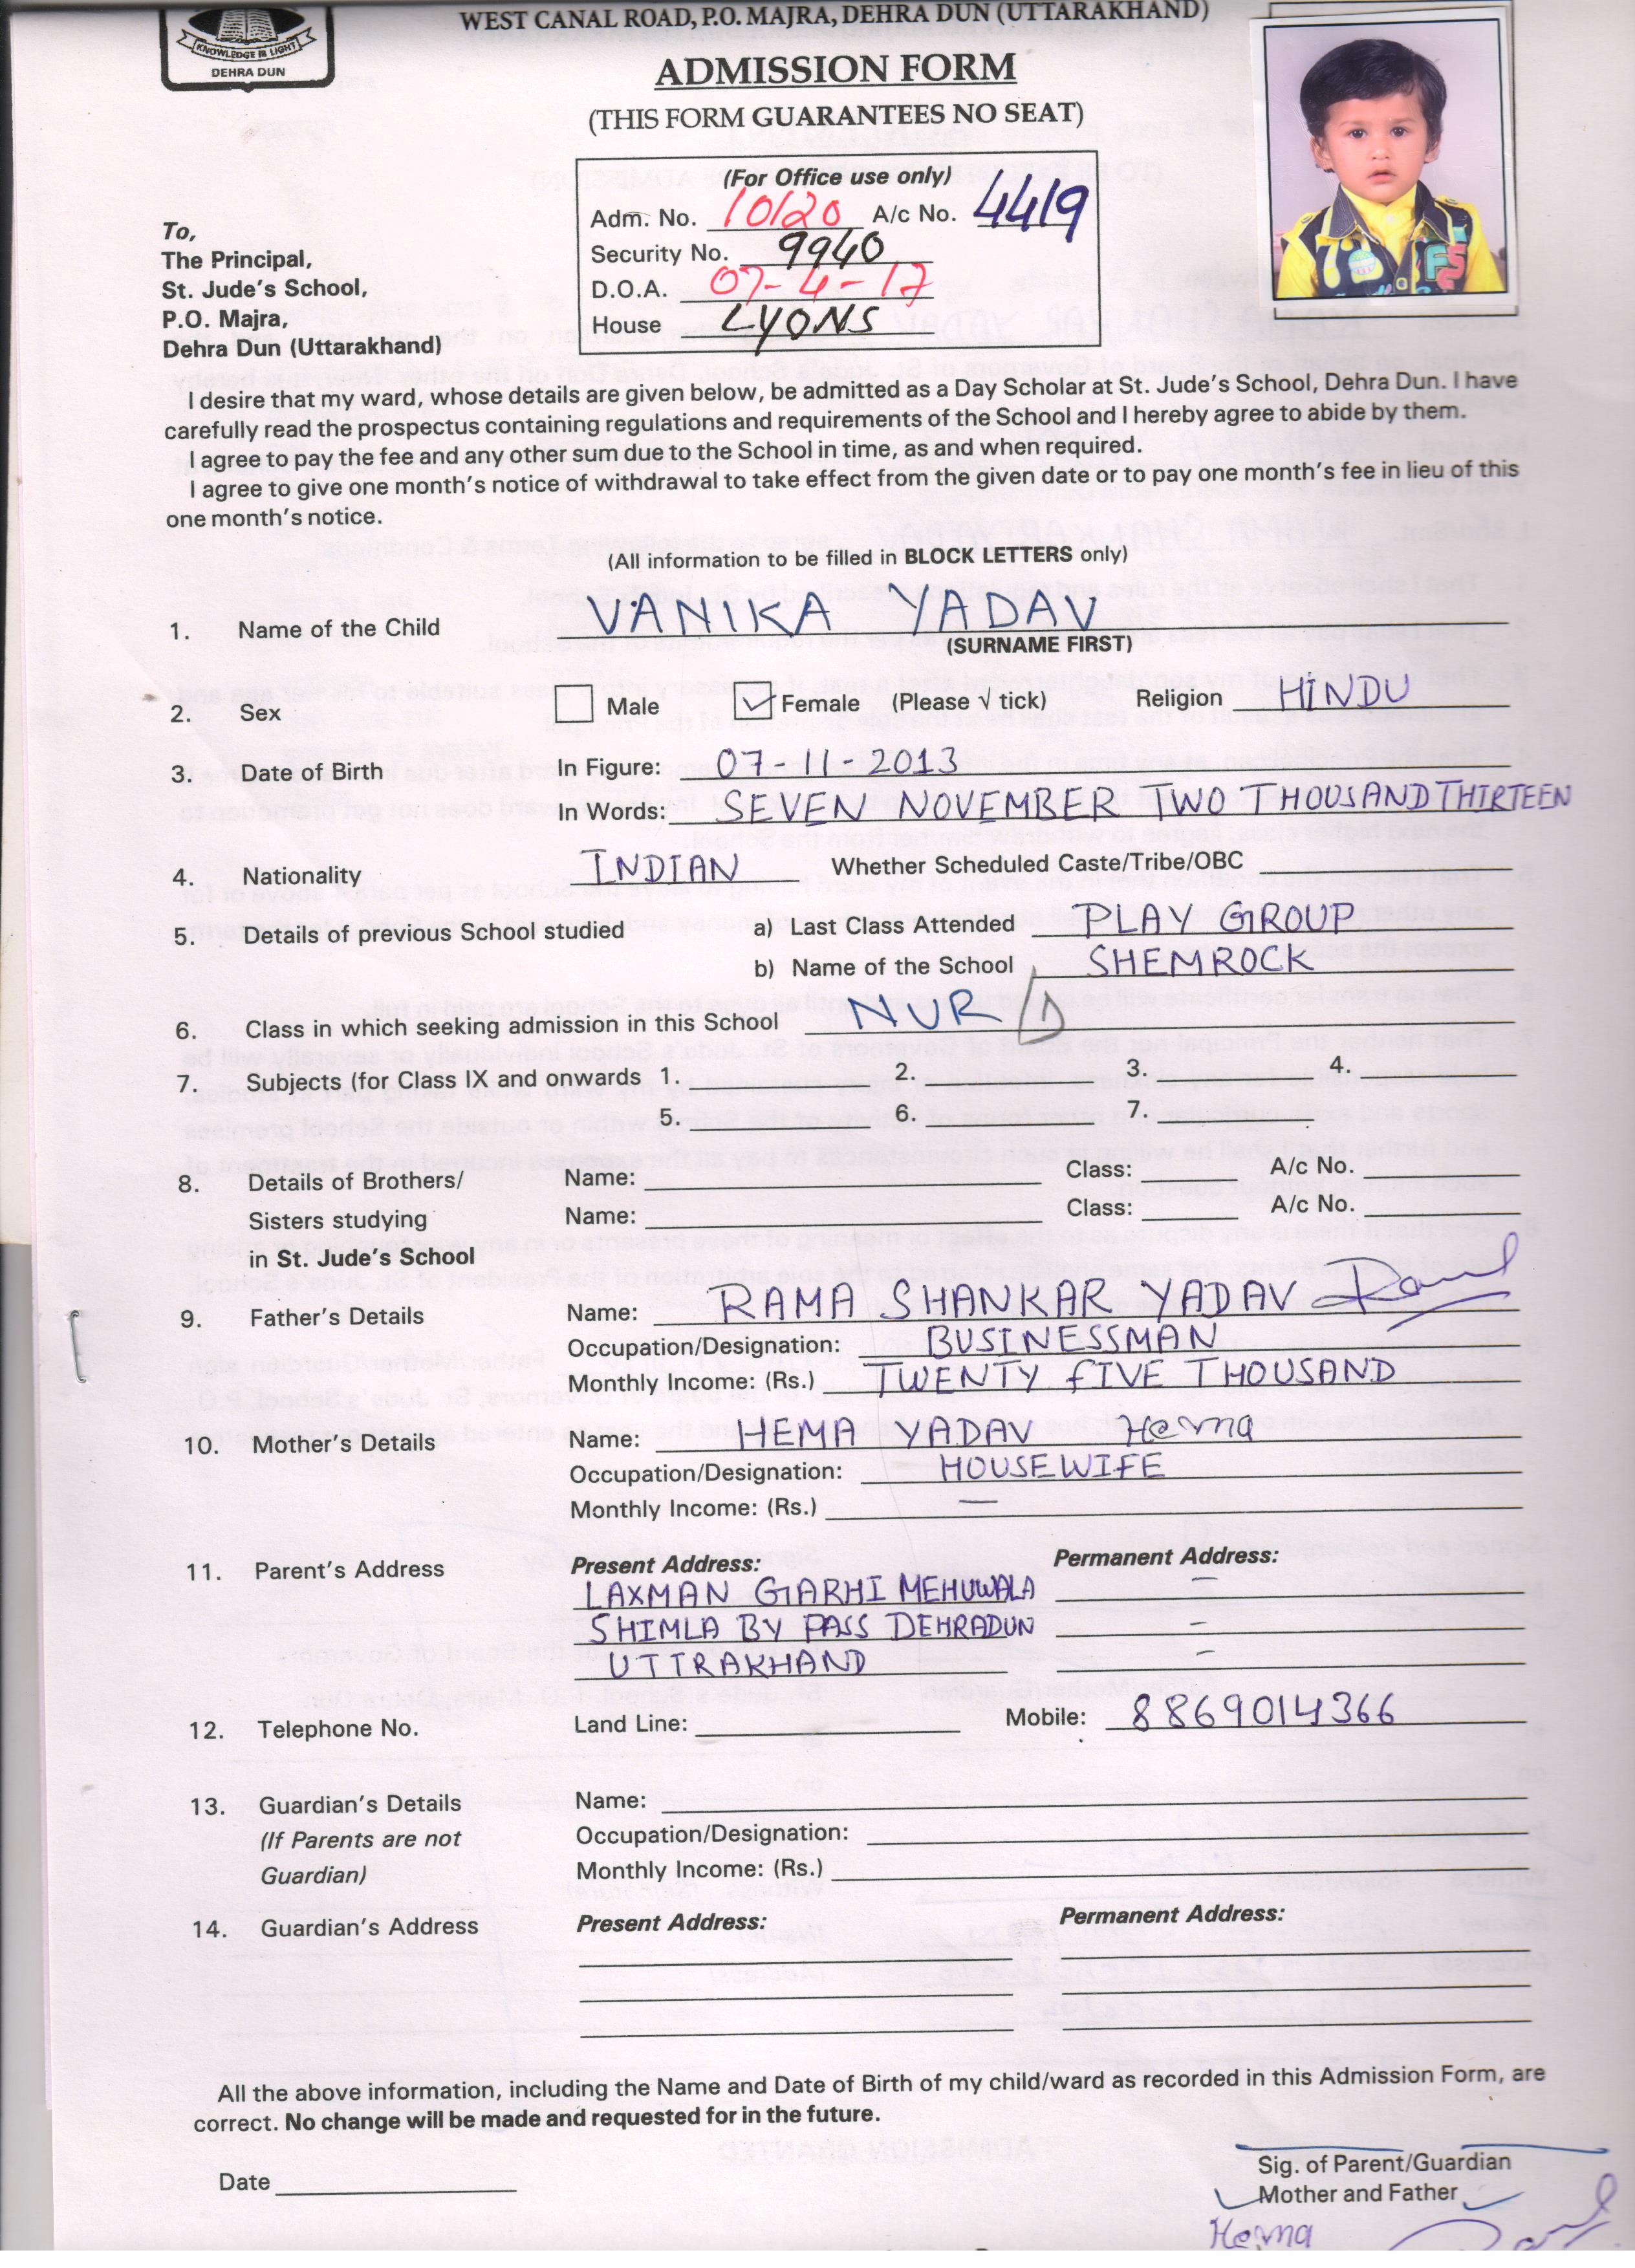 WEST CANAL ROAD, P.O. MAJRA, DEHRA DUN (UTTARAKHAND)
KNOWLEDGE IS LIGHT
DEHRA DUN
ADMISSION FORM
(THIS FORM GUARANTEES NO SEAT)
(For Office use only)
Adm. No. 10120 A/c No. 4419
Security No. 9940
D.O.A. 07-4-17
House LYONS
To,
The Principal,
St. Jude's School,
P.O. Majra,
Dehra Dun (Uttarakhand)
I desire that my ward, whose details are given below, be admitted as a Day Scholar at St. Jude's School, Dehra Dun. I have
carefully read the prospectus containing regulations and requirements of the School and I hereby agree to abide by them.
I agree to pay the fee and any other sum due to the School in time, as and when required.
I agree to give one month's notice of withdrawal to take effect from the given date or to pay one month's fee in lieu of this
one month's notice.
(All information to be filled in BLOCK LETTERS only)
1. Name of the Child VANIKA YADAV
(SURNAME FIRST)
2. Sex Male Female (Please √ tick) Religion HINDU
3. Date of Birth In Figure: 07-11-2013
In Words: SEVEN NOVEMBER TWO THOUSAND THIRTEEN
4. Nationality INDIAN Whether Scheduled Caste/Tribe/OBC
5. Details of previous School studied a) Last Class Attended PLAY GROUP
b) Name of the School SHEMROCK
6. Class in which seeking admission in this School NUR
7. Subjects (for Class IX and onwards 1. 2. 3. 4.
5. 6. 7.
8. Details of Brothers/ Name: Class: A/c No.
Sisters studying Name: Class: A/c No.
in St. Jude's School
9. Father's Details Name: RAMA SHANKAR YADAV
Occupation/Designation: BUSINESSMAN
Monthly Income: (Rs.) TWENTY FIVE THOUSAND
10. Mother's Details Name: HEMA YADAV Hema
Occupation/Designation: HOUSEWIFE
Monthly Income: (Rs.) —
11. Parent's Address Present Address: Permanent Address:
LAXMAN GARHI MEHUWALA –
SHIMLA BY PASS DEHRADUN –
UTTRAKHAND –
12. Telephone No. Land Line: Mobile: 8869014366
13. Guardian's Details Name:
(If Parents are not Occupation/Designation:
Guardian) Monthly Income: (Rs.)
14. Guardian's Address Present Address: Permanent Address:
All the above information, including the Name and Date of Birth of my child/ward as recorded in this Admission Form, are
correct. No change will be made and requested for in the future.
Sig. of Parent/Guardian
Date Mother and Father
Hema